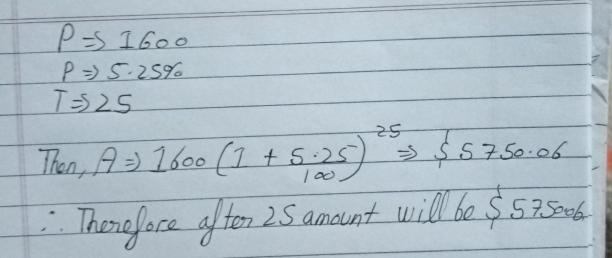 P => 1600
P => 5.25%
T => 25
Then, A => 1600 (1 + 5.25/100)^25 => $ 5750.06
∴ Therefore after 25 amount will be $ 575006